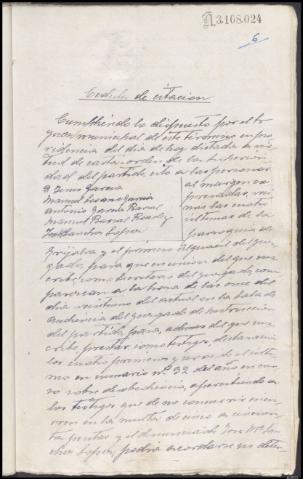 3.108.024
6
Cedula de citacion
Cumpliendo lo dispuesto por el Sr
Juez municipal de este término en pro
videncia del dia de hoy dictada a vir
tud de carta-orden de la superiori
dad del partido cito a las personas
D. Jesus Garcia
Manuel Garcia
Antonio Garcia
Manuel
José Sanchez Lopez
al margen ex
presadas, ve
cinas las cuatro
últimas de la
parroquia de
y el primero Alguacil del Juz
gado, para que en union del que sus
cribe, como Secretario del Juzgado, com
parezcan a la hora de las once del
dia veintuno del actual en la Sala de
Audiencia del Juzgado de instruccion
del partido, para, ademas del que sus
cribe, prestar como testigos, declaracion
los cuatro primeros y el últi
mo en sumario nº 32 del año en cur
so sobre desobediencia, apercibiendo a
los testigos que de no concurrir incu
rren en la multa de cinco a cincuen
ta pesetas y el denunciado José Mª San
chez Lopez, podria acordarse su deten